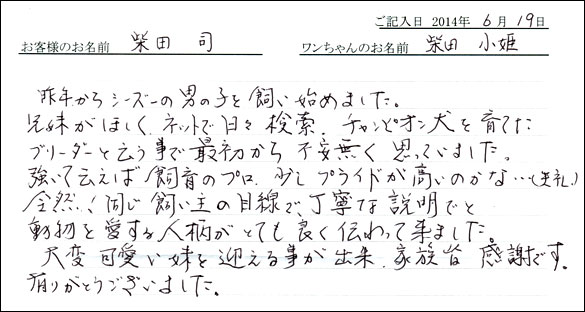 ご記入日 2014年 6月 19日
お客様のお名前 柴田 司 ワンちゃんのお名前 柴田 小姫
昨年からシーズーの男の子を飼い始めました。
兄妹がほしく、ネットで日々検索、チャンピオン犬を育てた
ブリーダーと云う事で最初から不安無く思っていました。
強いて云えば飼育のプロ、少しプライドが高いのかな…(失礼)
全然!同じ飼い主の目線で、丁寧な説明でと
動物を愛する人柄がとても良く伝わって来ました。
大変可愛い妹を迎える事が出来、家族皆感謝です。
有りがとうございました。